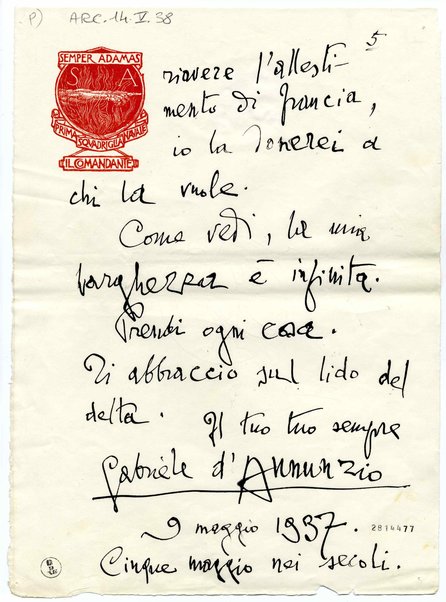 P) ARC.14.V.38
5
SEMPER ADAMAS
S A
PRIMA SQVADRIGLIA NAVALE
IL COMANDANTE
riavere l'allesti-
mento di francia,
io la donerei a
chi la vuole.
Come vedi, la mia
larghezza è infinita.
Prendi ogni cosa.
Ti abbraccio sul lido del
delta. Il tuo tuo sempre
Gabriele d'Annunzio
9 maggio 1937.
2814477
Cinque maggio nei secoli.